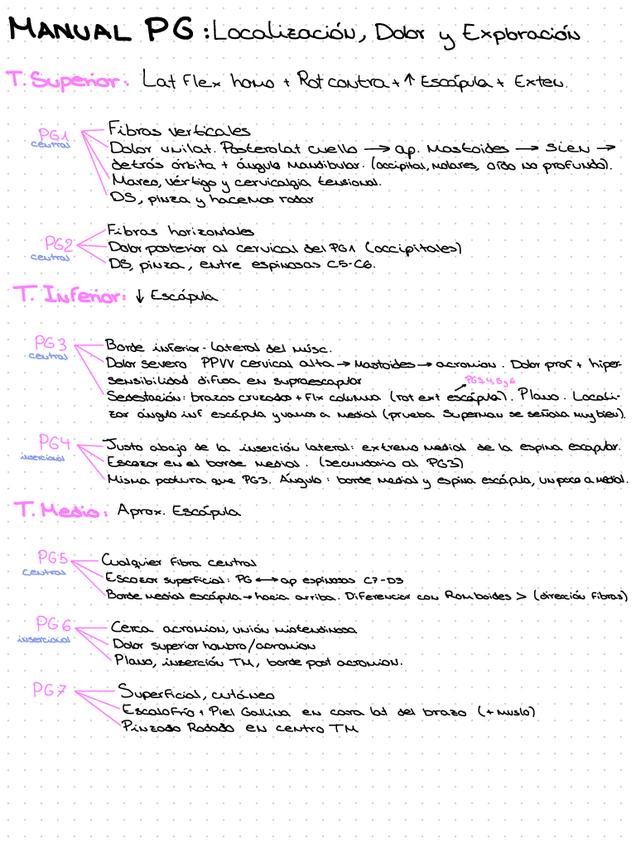 MANUAL PG: Localización, Dolor y Exploración
T. Superior: Lat Flex homo + Rot contra + ↑ Escápula + Exten.
PG1
central
Fibras verticales
Dolor unilat. Posterolat cuello → ap. Mastoides → sien →
detrás órbita + ángulo mandibular. (occipital, molares, oído no profundo).
Mareo, vértigo y cervicalgia tensional.
DS, pinza y hacemos rodar
PG2
central
Fibras horizontales
Dolor posterior al cervical del PG1 (occipitales)
DS, pinza, entre espinosas C5-C6.
T. Inferior: ↓ Escápula
PG3
central
Borde inferior-lateral del músc.
Dolor severo PPVV cervical alta → Mastoides → acromion. Dolor prof + hiper
sensibilidad difusa en supraescapular
PG3,4,5 y 6
Sedestación: brazos cruzados + Flx columna (rot ext escápula). Plano. Locali-
zar ángulo inf escápula y vamos a medial (prueba Superman se señala muy bien).
PG4
insercional
Justo abajo de la inserción lateral: extremo medial de la espina escapular.
Escozor en el borde medial. (secundario al PG3)
Misma postura que PG3. Ángulo: borde medial y espina escápula, un poco a medial.
T. Medio: Aprox. Escápula
PG5
central
Cualquier fibra central
Escozor superficial: PG ↔ ap espinosas C7-D3
Borde medial escápula → hacia arriba. Diferenciar con Romboides > (dirección fibras)
PG6
insercional
Cerca acromion, unión miotendinosa
Dolor superior hombro/acromion
Plano, inserción TM, borde post acromion.
PG7
Superficial, cutáneo
Escalofrío + Piel Gallina en cara lat del brazo (+ muslo)
Pinzado Rodado en centro TM